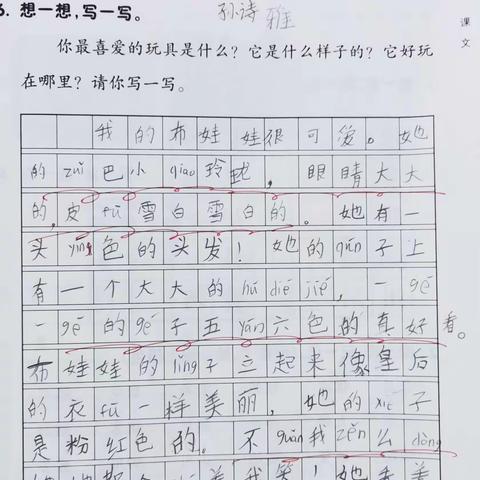 6. 想一想，写一写。
孙诗雅
课文
你最喜爱的玩具是什么？它是什么样子的？它好玩
在哪里？请你写一写。
我的布娃娃很可爱。她
的zuǐ巴小qiǎo玲珑，眼睛大大
的，皮fū雪白雪白的。她有一
头yīng色的头发！她的qún子上
有一个大大的hú dié jié，一gē
一gē的gē子五yán六色的真好看。
布娃娃的lǐng子立起来像皇后
的衣fú一样美丽，她的xié子
是粉红色的。不guǎn我zěn么dòng